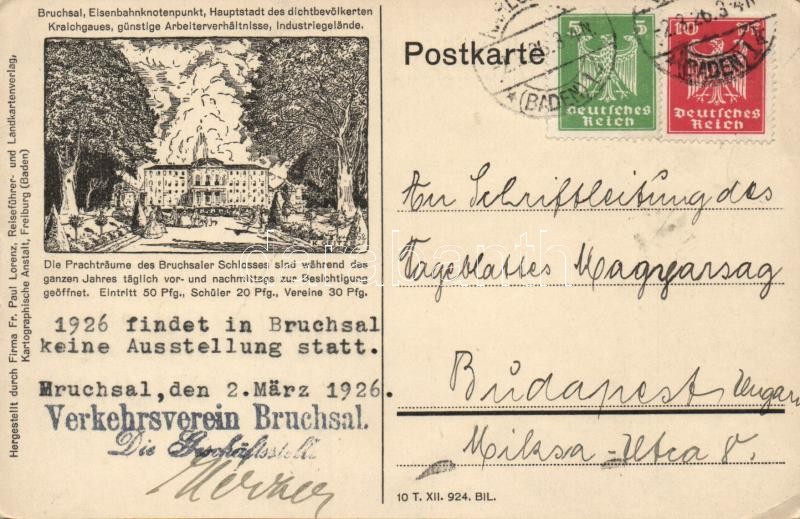 Bruchsal, Eisenbahnknotenpunkt, Hauptstadt des dichtbevölkerten
Kraichgaues, günstige Arbeiterverhältnisse, Industriegelände.
Die Prachträume des Bruchsaler Schlosses sind während des
ganzen Jahres täglich vor- und nachmittags zur Besichtigung
geöffnet. Eintritt 50 Pfg., Schüler 20 Pfg., Vereine 30 Pfg.
1926 findet in Bruchsal
keine Ausstellung statt.
Bruchsal, den 2.März 1926.
Verkehrsverein Bruchsal.
Die Geschäftsstelle
Hergestellt durch Firma Fr. Paul Lorenz, Reiseführer- und Landkartenverlag,
Kartographische Anstalt, Freiburg (Baden)
Postkarte
5 5
Deutsches
Reich
10
Deutsches
Reich
(BADEN) 1
(BADEN) 1
An Schriftleitung des
Tageblattes Magyarsag
Budapest Ungarn
Miksa-Utca 8.
10 T. XII. 924. BIL.
darabanth